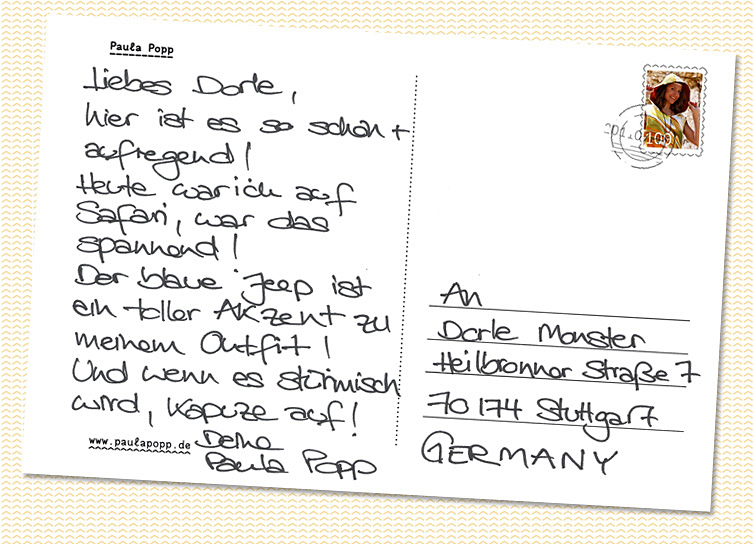 Paula Popp
Liebes Dorle,
hier ist es so schön +
aufregend!
Heute war ich auf
Safari, war das
spannend!
Der blaue Jeep ist
ein toller Akzent zu
meinem Outfit!
Und wenn es stürmisch
wird, Kapuze auf!
Deine
Paula Popp
www.paulapopp.de
100
An
Dorle Monster
Heilbronner Straße 7
70174 Stuttgart
GERMANY